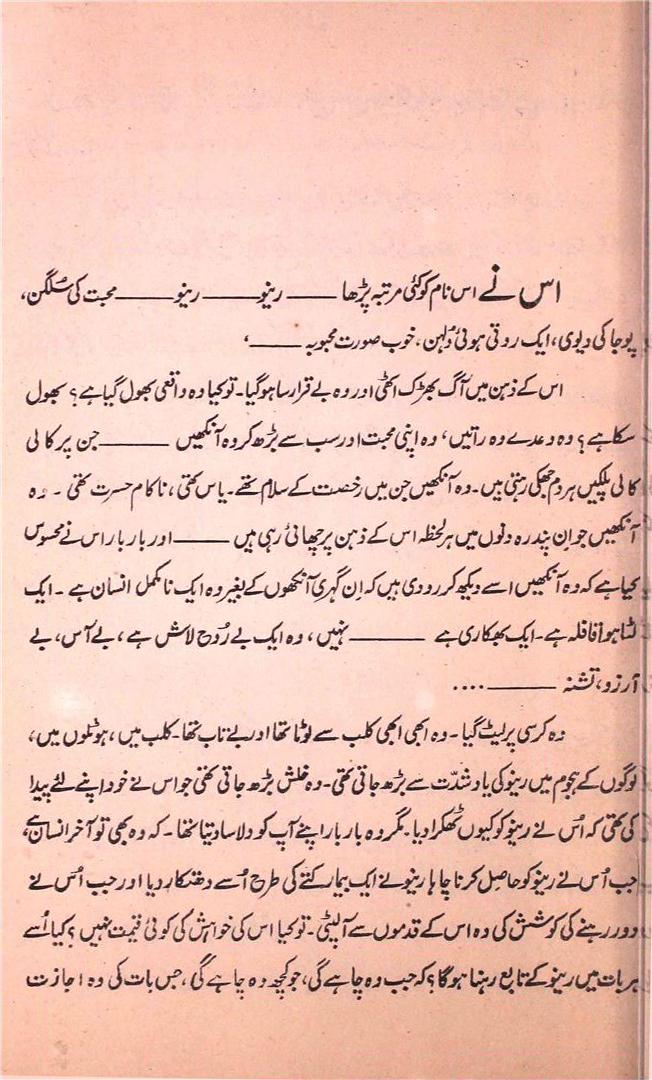 اس نے اس نام کو کئی مرتبہ پڑھا ——— رینو ——— رینو ——— محبت کی سُلگن،
پوجا کی دیوی، ایک روتی ہوئی دُلہن، خوب صورت محبوبہ ———،
اس کے ذہن میں آگ بھڑک اٹھی اور وہ بے قرار سا ہو گیا۔ تو کیا وہ واقعی بھول گیا ہے؟ بھول
سکا ہے؟ وہ وعدے وہ راتیں، وہ اپنی محبت اور سب سے بڑھ کر وہ آنکھیں ——— جن پر کالی
کالی پلکیں ہر دم جھکی رہتی ہیں۔ وہ آنکھیں جن میں رخصت کے سلام تھے۔ یاس تھی، ناکام حسرت تھی۔ وہ
آنکھیں جو اِن پندرہ دنوں میں ہر لحظہ اس کے ذہن پر چھائی رہی ہیں ——— اور بار بار اس نے محسوس
کیا ہے کہ وہ آنکھیں اسے دیکھ کر رو دی ہیں کہ اِن گہری آنکھوں کے بغیر وہ ایک نامکمل انسان ہے۔ ایک
لٹا ہوا قافلہ ہے۔ ایک بھکاری ہے ——— نہیں، وہ ایک بے رُوح لاش ہے، بے آس، بے
آرزو، تشنہ ——— ....
وہ کرسی پر لیٹ گیا۔ وہ ابھی ابھی کلب سے لوٹا تھا اور بے تاب تھا۔ کلب میں، ہوٹلوں میں،
لوگوں کے ہجوم میں رینو کی یاد شدّت سے بڑھ جاتی تھی۔ وہ خلش بڑھ جاتی تھی جو اس نے خود اپنے لئے پیدا
کی تھی کہ اُس نے رینو کو کیوں ٹھکرا دیا۔ مگر وہ بار بار اپنے آپ کو دلاسا دیتا تھا۔ کہ وہ بھی تو آخر انسان ہے،
جب اُس نے رینو کو حاصل کرنا چاہا رینو نے ایک بیمار کتے کی طرح اُسے دھتکار دیا اور جب اُس نے
دور رہنے کی کوشش کی وہ اس کے قدموں سے آ لپٹی۔ تو کیا اس کی خواہش کی کوئی قیمت نہیں؟ کیا اُسے
ہر بات میں رینو کے تابع رہنا ہو گا؟ کہ جب وہ چاہے گی، جو کچھ وہ چاہے گی، جس بات کی وہ اجازت